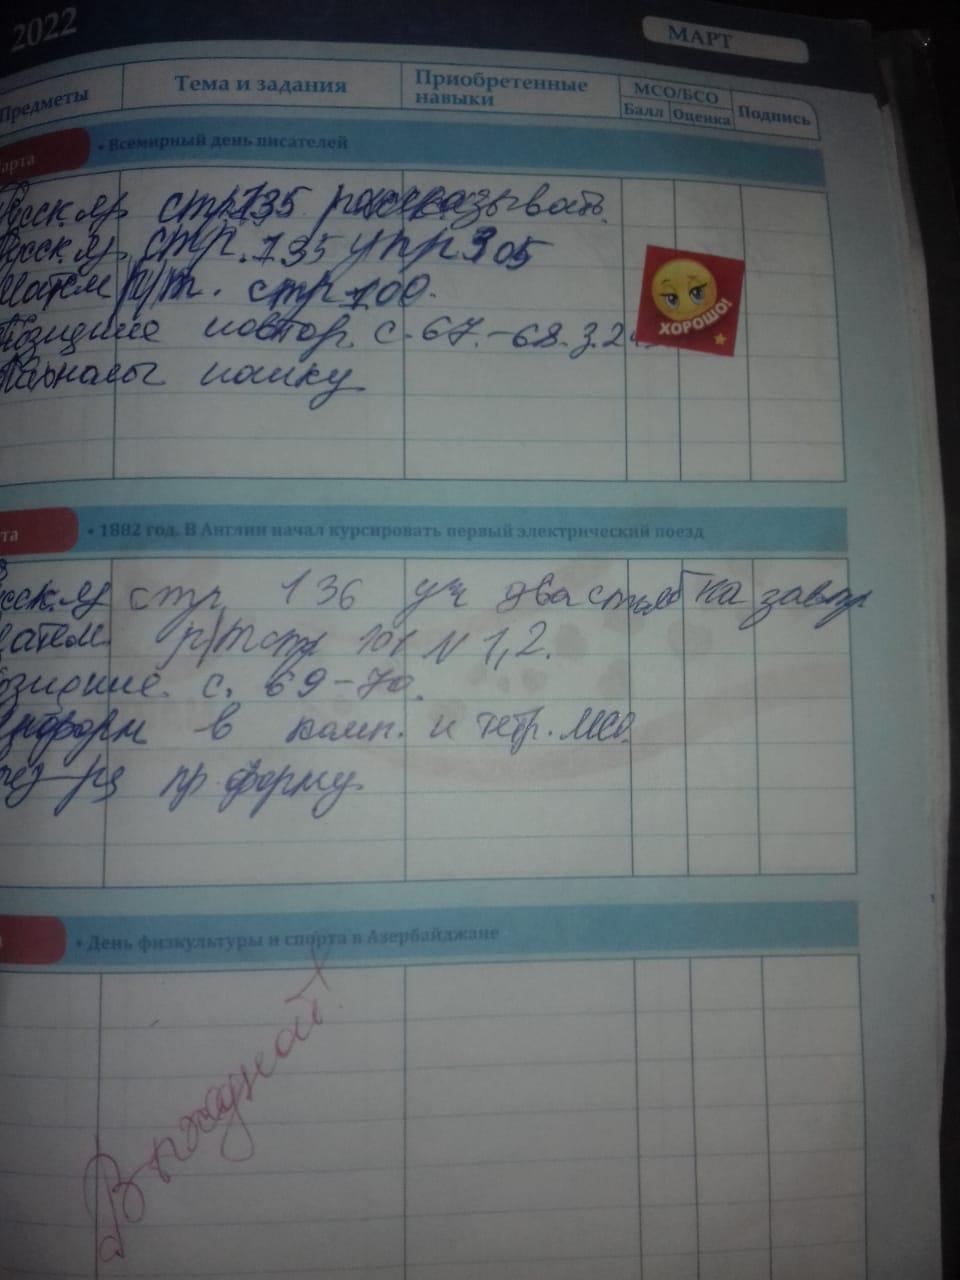 2022
МАРТ
Предметы
Тема и задания
Приобретенные навыки
МСО/БСО
Балл
Оценка
Подпись
арта
• Всемирный день писателей
Русск.яз стр 135 рассказывать
Русск.яз стр. 135 упр 305
Матем р/т. стр 100.
Познание повтор. с. 67.-68. з.
папку
ХОРОШО!
та
• 1882 год. В Англии начал курсировать первый электрический поезд
сск.яз стр 136 уч два столб на завтр
атем. р/т стр 101 N 1,2.
ознание. с. 69-70.
Информ в комп. и тетр. МСО
пр. форму
• День физкультуры и спорта в Азербайджане
Выходной!